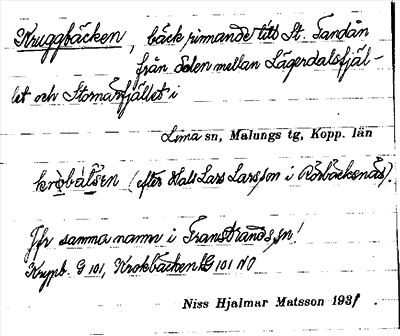 Kruggbäcken, bäck rinnande till St. Tandån
från dalen mellan Lägerdalsfjäl-
let och Stomårfjället i
Lima sn, Malungs tg, Kopp. län
(efter Hals Lars Larsson i Rörbäcksnäs).
Jfr samma namn i Transtrands sn!
Krypb. G 101, Krokbäcken G 101 NO
Niss Hjalmar Matsson 193